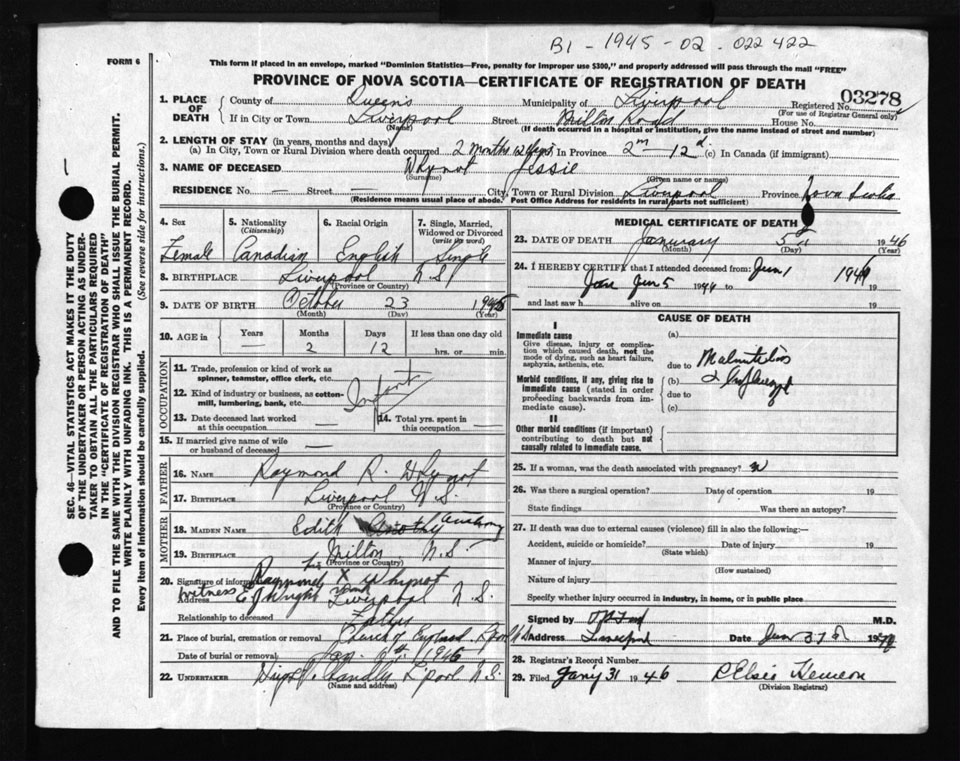 B1 - 1945 - 02 - 022 422
FORM 6
This form if placed in an envelope, marked "Dominion Statistics—Free, penalty for improper use $300," and properly addressed will pass through the mail "FREE"
PROVINCE OF NOVA SCOTIA—CERTIFICATE OF REGISTRATION OF DEATH
03278
1. PLACE OF DEATH
County of Queen's Municipality of Liverpool Registered No.
(For use of Registrar General only)
If in City or Town Liverpool Street Road House No.
(Name) (If death occurred in a hospital or institution, give the name instead of street and number)
2. LENGTH OF STAY (in years, months and days)
(a) In City, Town or Rural Division where death occurred 2 months 12 days In Province 2m — 12d (c) In Canada (if immigrant)
3. NAME OF DECEASED Whynot Jessie
(Surname) (Given name or names)
RESIDENCE No. — Street — City, Town or Rural Division Liverpool Province Nova Scotia
(Residence means usual place of abode. Post Office Address for residents in rural parts not sufficient)
4. Sex
5. Nationality (Citizenship)
6. Racial Origin
7. Single, Married, Widowed or Divorced (write the word)
Female Canadian English Single
8. BIRTHPLACE Liverpool N S
(Province or Country)
9. DATE OF BIRTH October 23 1945
(Month) (Day) (Year)
10. AGE in Years Months Days If less than one day old
— 2 12 hrs. or min.
OCCUPATION
11. Trade, profession or kind of work as spinner, teamster, office clerk, etc.
12. Kind of industry or business, as cotton-mill, lumbering, bank, etc. Infant
13. Date deceased last worked at this occupation
14. Total yrs. spent in this occupation
15. If married give name of wife or husband of deceased —
FATHER
16. NAME Raymond R. Whynot
17. BIRTHPLACE Liverpool N.S.
(Province or Country)
MOTHER
18. MAIDEN NAME Edith
19. BIRTHPLACE Milton N.S.
(Province or Country)
20. Signature of informant Raymond his X mark Whynot
witness E J Wright
Address Liverpool N.S.
Relationship to deceased Father
21. Place of burial, cremation or removal Church of England L'pool N.S.
Date of burial or removal Jan. 6th 1946
22. UNDERTAKER Chandler L'pool N.S.
(Name and address)
MEDICAL CERTIFICATE OF DEATH
23. DATE OF DEATH January 5th 1946
(Month) (Day) (Year)
24. I HEREBY CERTIFY that I attended deceased from: Jan 1 19
Jan 5 19 19
and last saw h alive on 19
CAUSE OF DEATH
I
Immediate cause
Give disease, injury or complication which caused death, not the mode of dying, such as heart failure, asphyxia, asthenia, etc.
(a)
due to
Morbid conditions, if any, giving rise to immediate cause (stated in order proceeding backwards from immediate cause).
(b)
due to
(c)
II
Other morbid conditions (if important) contributing to death but not causally related to immediate cause.
25. If a woman, was the death associated with pregnancy?
26. Was there a surgical operation? Date of operation 19
State findings Was there an autopsy?
27. If death was due to external causes (violence) fill in also the following:—
Accident, suicide or homicide? Date of injury 19
(State which)
Manner of injury
(How sustained)
Nature of injury
Specify whether injury occurred in industry, in home, or in public place
Signed by M.D.
Address Liverpool Date Jan 19
28. Registrar's Record Number
29. Filed Jan'y 31 1946
(Division Registrar)
SEC. 46—VITAL STATISTICS ACT MAKES IT THE DUTY
OF THE UNDERTAKER OR PERSON ACTING AS UNDER-
TAKER TO OBTAIN ALL THE PARTICULARS REQUIRED
IN THE "CERTIFICATE OF REGISTRATION OF DEATH"
AND TO FILE THE SAME WITH THE DIVISION REGISTRAR WHO SHALL ISSUE THE BURIAL PERMIT.
WRITE PLAINLY WITH UNFADING INK. THIS IS A PERMANENT RECORD.
Every item of Information should be carefully supplied. (See reverse side for instructions.)